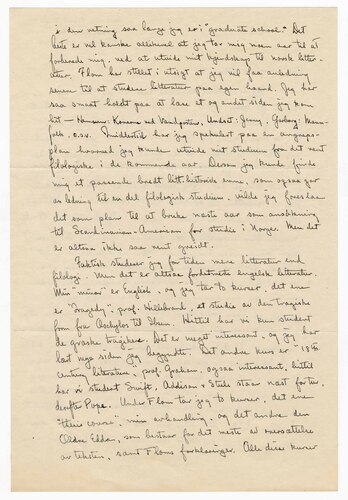 i den retning saa længe jeg er i "graduate school." Det
beste er vel kanske allikevel at jeg tar meg noen aar til at
forberede mig, ned at utvide mit kjendskap til norsk litter-
atur. Flom har stillet i utsigt at jeg vil faa anledning
senere til at studere litteratur paa egen haand. Jeg har
saa smaat holdt paa at lase et og andet siden jeg kom
hit — Hansun: Konerne ved Vandposten, Undset: Jenny, Garborg: Mann-
folk, o.s.v. Imidlertid har jeg spekulert paa en angreps-
plan hvorved jeg kunde utvide mit studium fra det rent
filologiske i de kommende aar. Dersom jeg kunde finde
mig et passende bredt litt.historisk emne, som ogsaa gav
anledning til en del filologisk studium, vilde jeg foreslaa
det som plan til at bruke næste aar som ansøkning
til Scandinavian-American for studie i Norge. Men det
er altsaa ikke saa rent greidt.
Faktisk studerer jeg for tiden mere litteratur end
filologi. Men det er altsaa forholdsvis engelsk litteratur.
Min "minor" er English, og jeg tar to kurser, det ene
er "Tragedy", prof. Hillebrand, et studie av den tragiske
form fra Æschylos til Ibsen. Hittil har vi kun studert
de græske tragikere. Det er meget interessant, og jeg har
læst mye siden jeg begyndte. Det andre kurs er "18th
century literature", prof. Graham, ogsaa interessant, hittil
har vi studert Swift, Addison & Steele staar næst for tur,
derefter Pope. Under Flom tar jeg to kurser, det ene
"thesis course", min avhandling, og det andre den
Ældre Edda, som bestaar for det meste av oversættelse
av teksten, samt Floms forklaringer. Alle disse kurser